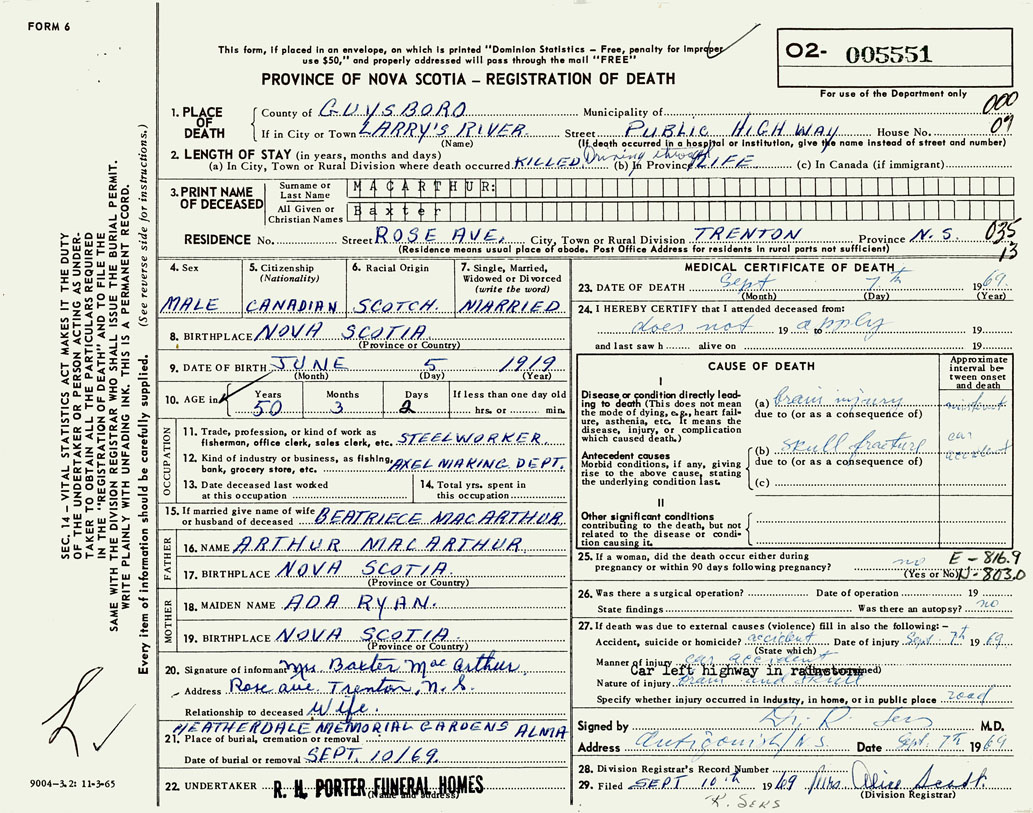 FORM 6
This form, if placed in an envelope, on which is printed "Dominion Statistics – Free, penalty for improper
use $50," and properly addressed will pass through the mail "FREE"
PROVINCE OF NOVA SCOTIA – REGISTRATION OF DEATH
O2- 005551
For use of the Department only
000
09
1. PLACE OF DEATH
County of GUYSBORO Municipality of
If in City or Town LARRY'S RIVER Street PUBLIC HIGHWAY House No.
(Name) (If death occurred in a hospital or institution, give the name instead of street and number)
2. LENGTH OF STAY (in years, months and days)
(a) In City, Town or Rural Division where death occurred KILLED Driving through (b) In Province LIFE (c) In Canada (if immigrant)
3. PRINT NAME OF DECEASED
Surname or Last Name MACARTHUR:
All Given or Christian Names Baxter
RESIDENCE No. Street ROSE AVE. City, Town or Rural Division TRENTON Province N.S.
(Residence means usual place of abode. Post Office Address for residents in rural parts not sufficient)
035
13
4. Sex
MALE
5. Citizenship (Nationality)
CANADIAN
6. Racial Origin
SCOTCH.
7. Single, Married, Widowed or Divorced (write the word)
MARRIED
8. BIRTHPLACE NOVA SCOTIA
(Province or Country)
9. DATE OF BIRTH JUNE 5 1919
(Month) (Day) (Year)
10. AGE in Years Months Days If less than one day old
50 3 2 hrs. or min.
OCCUPATION
11. Trade, profession, or kind of work as fisherman, office clerk, sales clerk, etc. STEELWORKER
12. Kind of industry or business, as fishing, bank, grocery store, etc. AXEL MAKING DEPT.
13. Date deceased last worked at this occupation
14. Total yrs. spent in this occupation
15. If married give name of wife or husband of deceased BEATRIECE MACARTHUR
FATHER
16. NAME ARTHUR MACARTHUR
17. BIRTHPLACE NOVA SCOTIA
(Province or Country)
MOTHER
18. MAIDEN NAME ADA RYAN.
19. BIRTHPLACE NOVA SCOTIA
(Province or Country)
20. Signature of informant Mrs. Baxter MacArthur
Address Rose ave. Trenton, N.S.
Relationship to deceased Wife.
HEATHERDALE MEMORIAL GARDENS ALMA
21. Place of burial, cremation or removal
Date of burial or removal SEPT. 10/69.
22. UNDERTAKER R. H. PORTER FUNERAL HOMES
(Name and address)
MEDICAL CERTIFICATE OF DEATH
23. DATE OF DEATH Sept 7th 1969
(Month) (Day) (Year)
24. I HEREBY CERTIFY that I attended deceased from:
does not 19 to apply 19
and last saw h alive on 19
CAUSE OF DEATH
Approximate interval between onset and death
I
Disease or condition directly leading to death (This does not mean the mode of dying, e.g., heart failure, asthenia, etc. It means the disease, injury, or complication which caused death.)
(a) brain injury
due to (or as a consequence of)
Antecedent causes
Morbid conditions, if any, giving rise to the above cause, stating the underlying condition last.
(b) skull fracture
due to (or as a consequence of)
car accident
(c)
II
Other significant conditions
contributing to the death, but not related to the disease or condition causing it.
25. If a woman, did the death occur either during
pregnancy or within 90 days following pregnancy? no
(Yes or No)
E - 816.9
N - 803.0
26. Was there a surgical operation? Date of operation 19
State findings Was there an autopsy? no
27. If death was due to external causes (violence) fill in also the following:–
Accident, suicide or homicide? accident Date of injury Sept. 7th 1969
(State which)
Manner of injury car accident
Car left highway in rainstorm
Nature of injury brain and skull
Specify whether injury occurred in Industry, in home, or in public place road
Signed by M.D.
Address Antigonish, N.S. Date Sept. 7th 1969
28. Division Registrar's Record Number
29. Filed SEPT 10th 1969 Mrs. Alice
(Division Registrar)
SEC. 14 – VITAL STATISTICS ACT MAKES IT THE DUTY
OF THE UNDERTAKER OR PERSON ACTING AS UNDER-
TAKER TO OBTAIN ALL THE PARTICULARS REQUIRED
IN THE "REGISTRATION OF DEATH" AND TO FILE THE
SAME WITH THE DIVISION REGISTRAR WHO SHALL ISSUE THE BURIAL PERMIT.
WRITE PLAINLY WITH UNFADING INK. THIS IS A PERMANENT RECORD.
Every item of information should be carefully supplied. (See reverse side for instructions.)
9004-3.2: 11-3-65